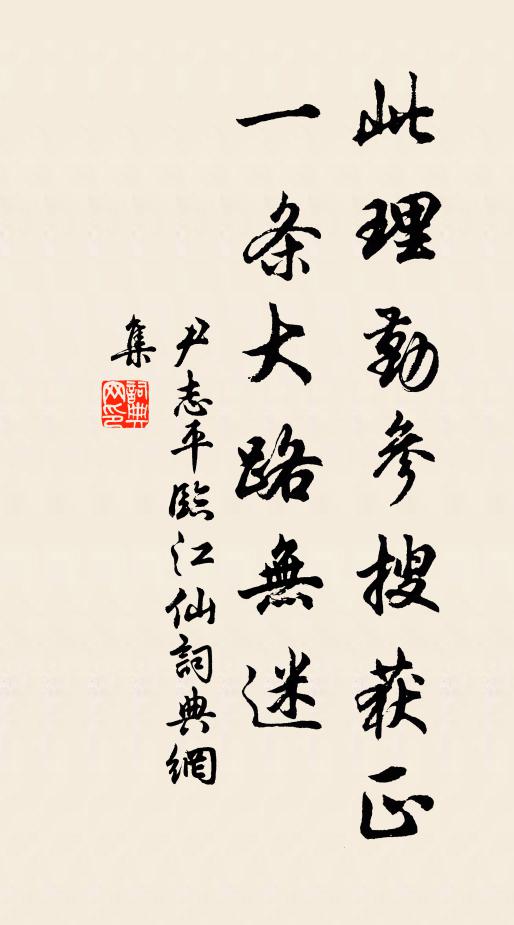 此理勤參搜获正
一条大路無迷
尹志平臨江仙詞典網
集
詞典
网印